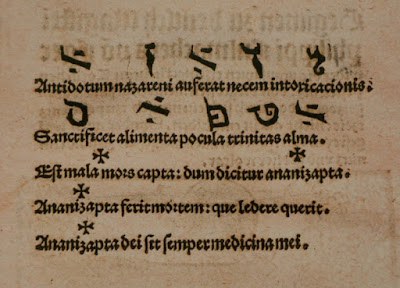 Antidotum nazareni auferat necem intoxicacionis.
Sanctificet alimenta pocula trinitas alma.
Est mala mors capta: dum dicitur ananizapta.
Ananizapta ferit mortem: que ledere querit.
Ananizapta dei sit semper medicina mei.